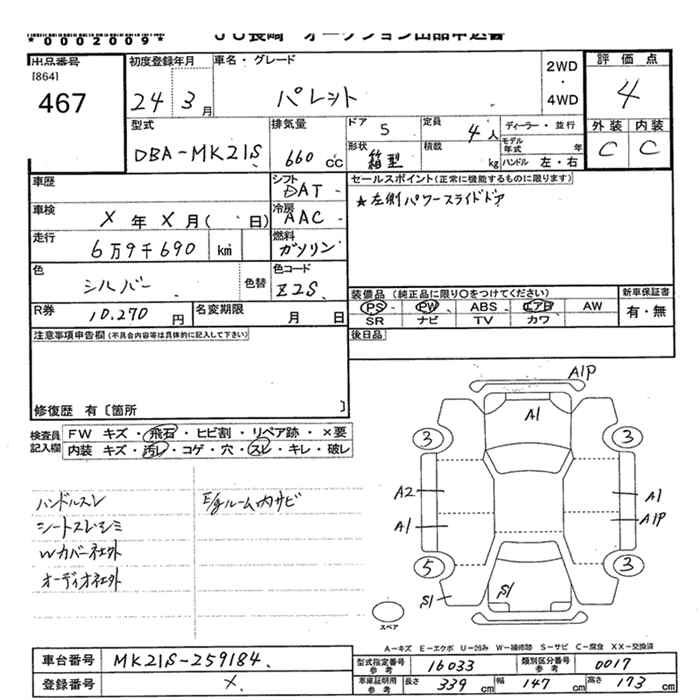 *0002009*
JU長崎 オークション出品申込書
出品番号
[864]
467
初度登録年月
24 3月
車名・グレード
パレット
2WD
・
4WD
評価点
4
外装 内装
C C
型式
DBA-MK21S
排気量
660 cc
ドア 5
定員 4人
ディーラー・並行
形状 箱型
積載 kg
モデル年式 年
ハンドル 左・右
車歴
シフト
DAT
セールスポイント(正常に機能するものに限ります)
★左側パワースライドドア
車検
X 年 X 月( 日)
冷房
AAC
走行
6万9千690 km
燃料
ガソリン
色
シルバー
色替
色コード
Z2S
装備品 (純正品に限り○をつけてください)
新車保証書
PS PW ABS エアB AW
有・無
SR ナビ TV カワ
R券
10.270 円
名変期限
月 日
注意事項申告欄(不具合内容等は具体的に記入して下さい)
後日品
修復歴 有〔箇所 〕
検査員
記入欄
FW キズ・飛石・ヒビ割・リペア跡・×要
内装 キズ・汚レ・コゲ・穴・スレ・キレ・破レ
ハンドルスレ
E/gルーム内サビ
シートスレシミ
Wカバーネエト
オーディオネエト
A1P
A1
3 3
A2 A1
A1 A1P
5 3
S1 S1
スペア
A-キズ E-エクボ U-凹み W-補修跡 S-サビ C-腐食 XX-交換済
車台番号
MK21S-259184
型式指定番号
参考
16033
類別区分番号
参考
0017
登録番号
X
車庫証明用
参考
長さ 339 cm
幅 147 cm
高さ 173 cm